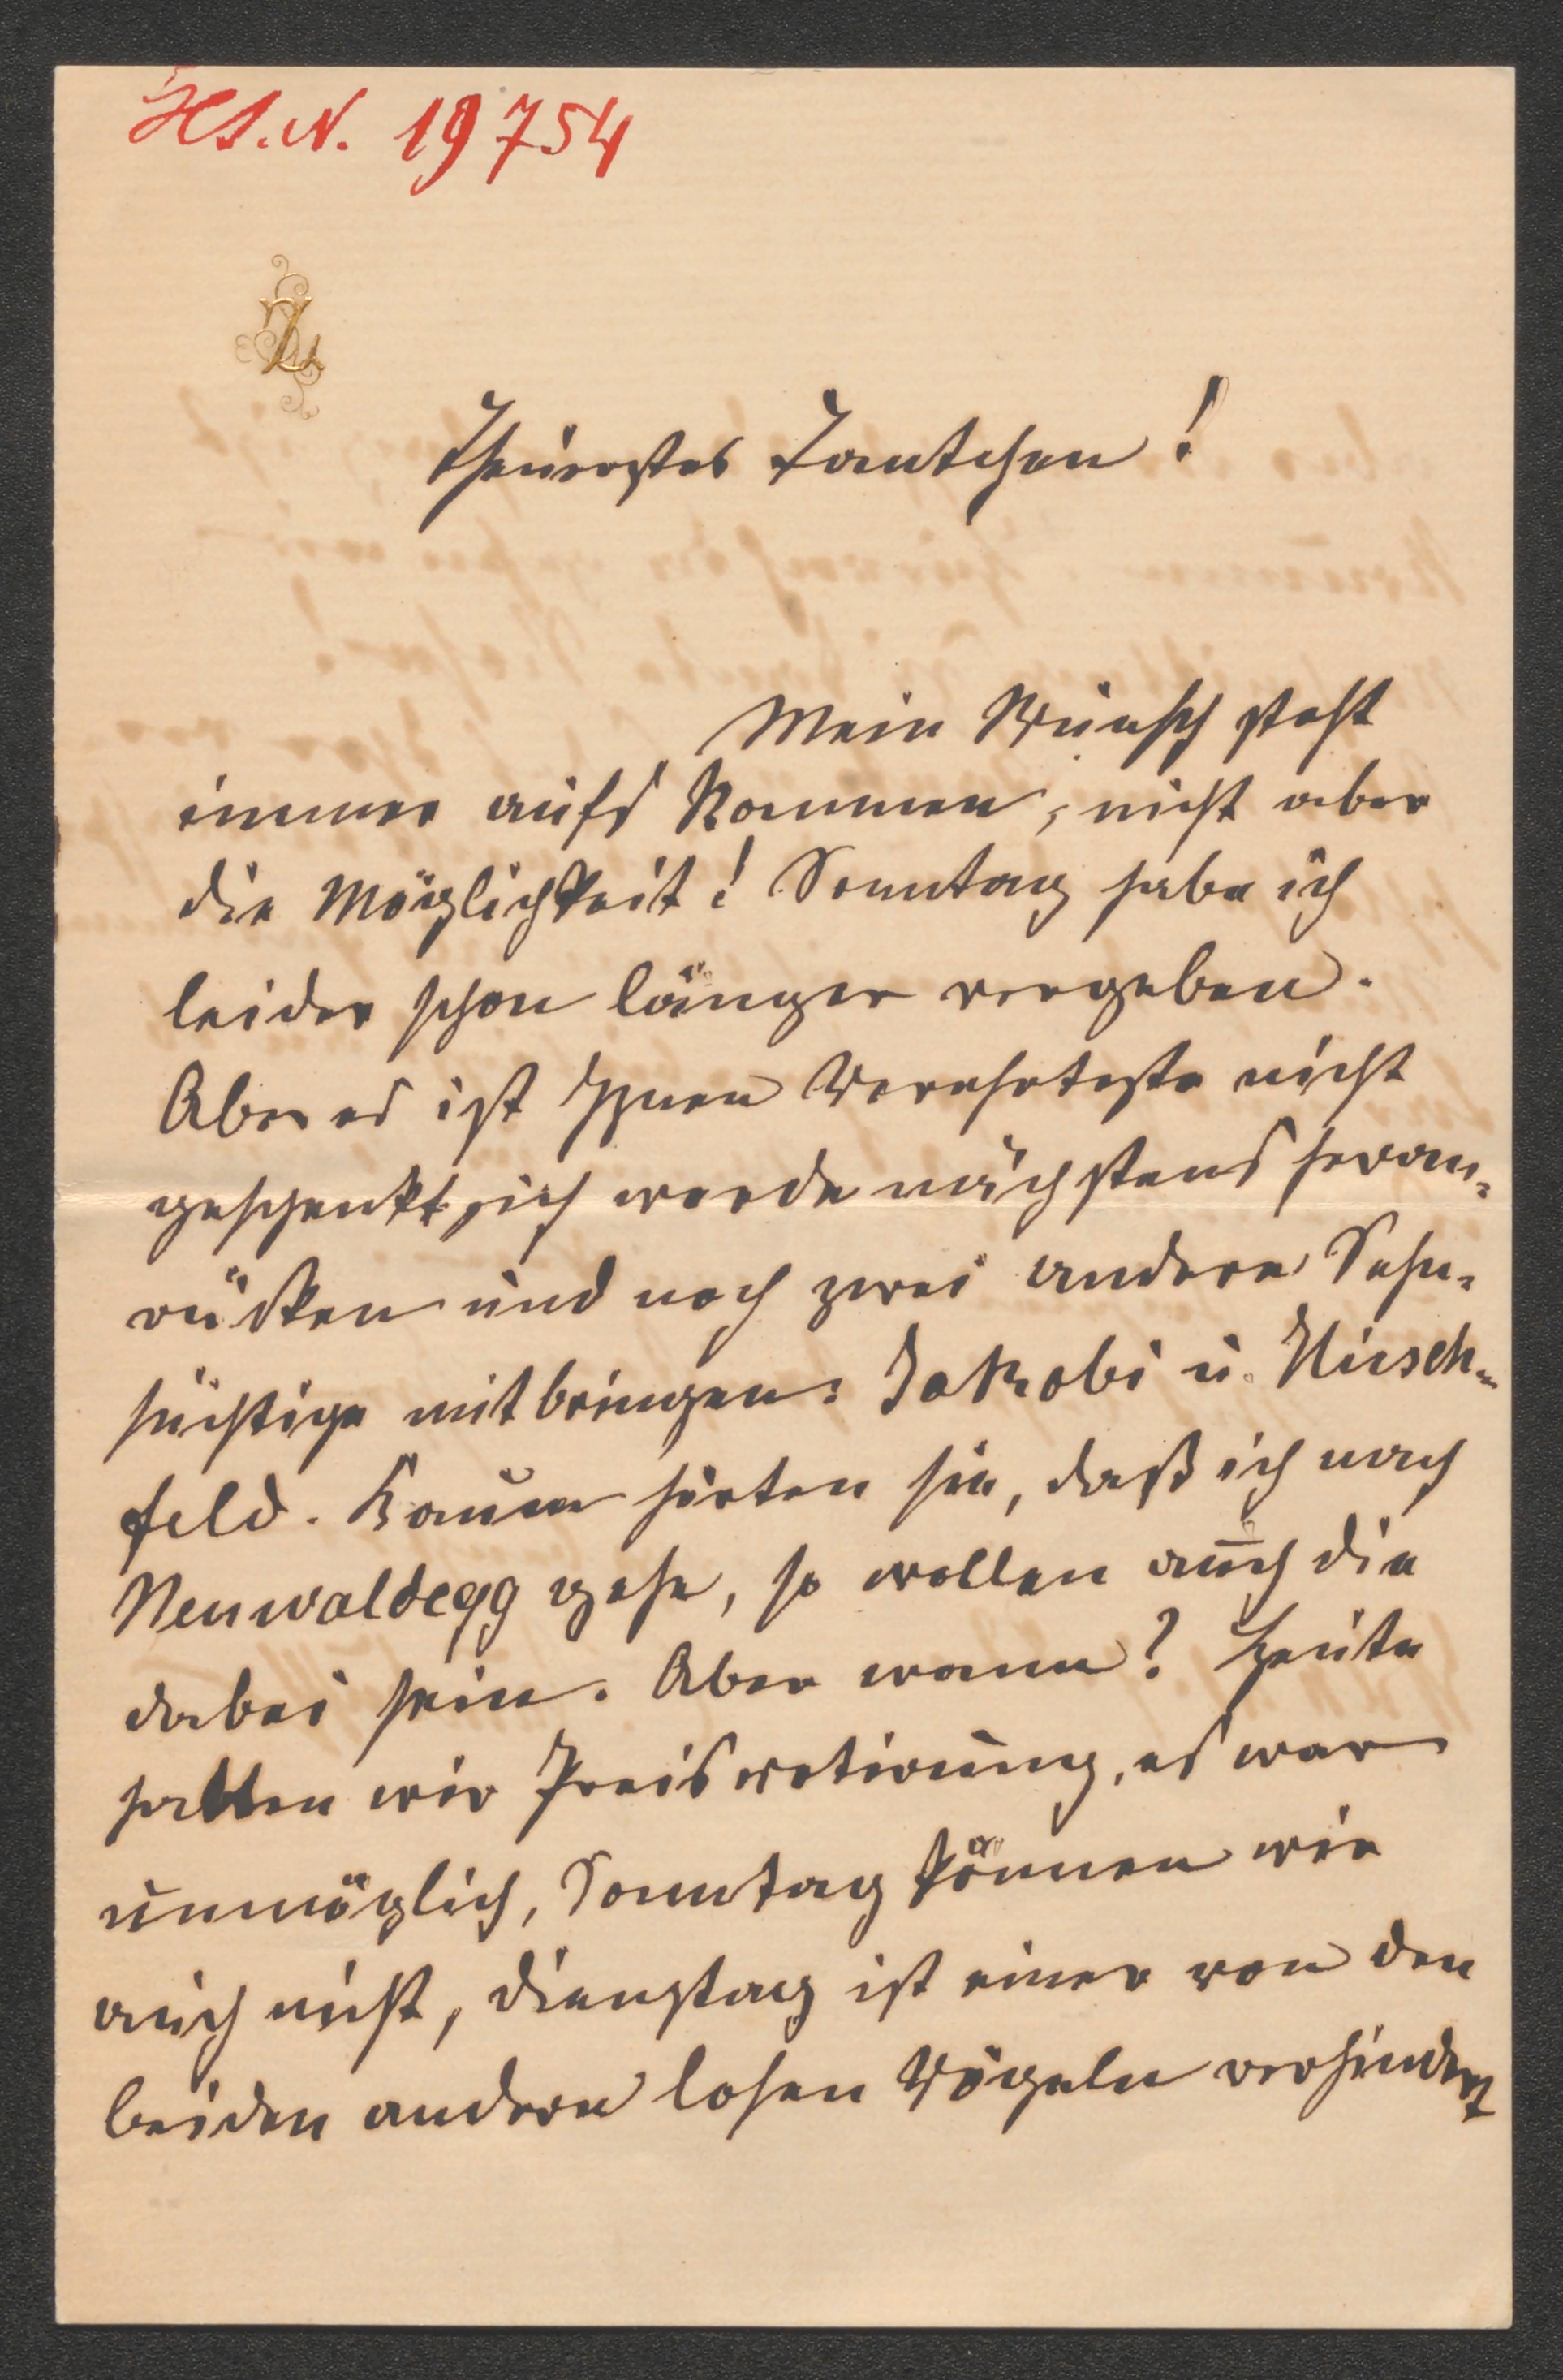 HS.N. 19754
Theuerstes Tantchen!
Mein Wunsch steht
immer aufs Kommen, nicht aber
die Möglichkeit! Sonntag habe ich
leider schon länger vergeben.
Aber es ist Ihnen Verehrteste nicht
geschenkt, ich werde nächstens heran-
rücken und noch zwei andere Sehn-
süchtige mitbringen: Jakobi u. Hirsch-
feld. Kaum hörten sie, daß ich nach
Neuwaldegg gehe, so wollen auch die
dabei sein. Aber wann? Heute
hatten wir Preisvotirung, es war
unmöglich, Sonntag können wir
auch nicht, Dienstag ist einer von den
beiden andern losen Vögeln verhindert